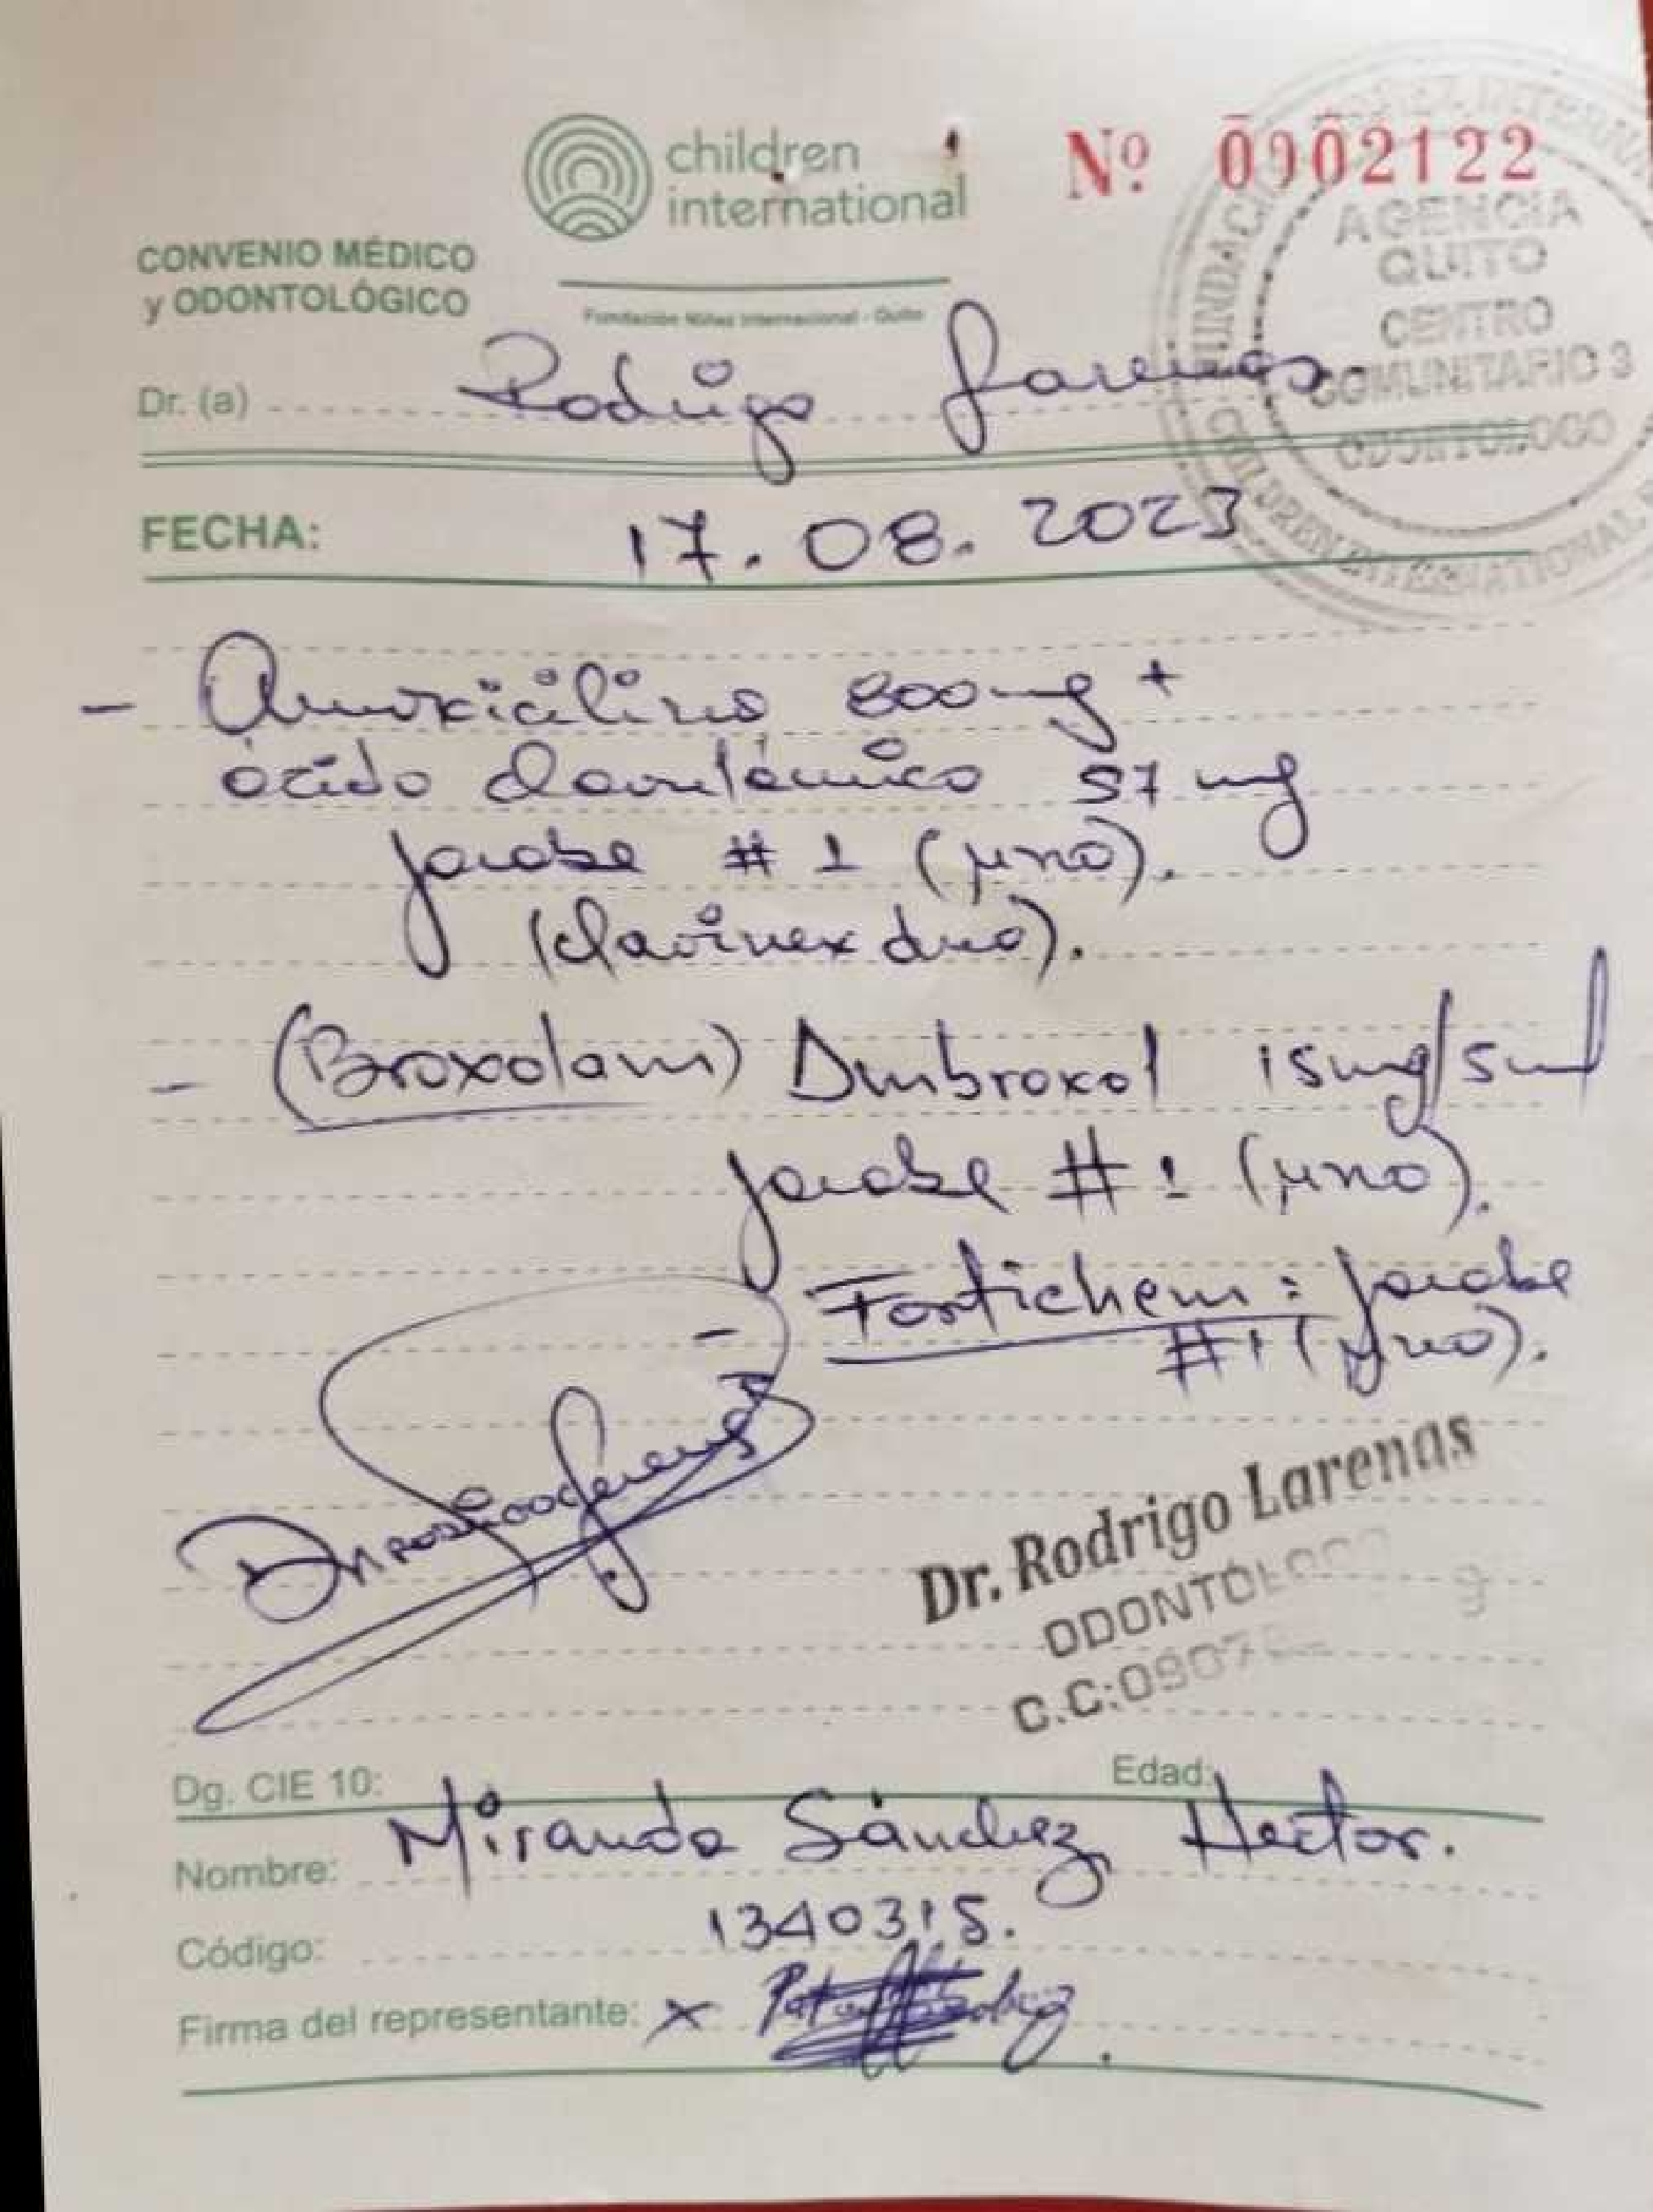 children
international
Nº 0902122
CONVENIO MÉDICO
y ODONTOLÓGICO
Fundación Niñez Internacional - Quito
AGENCIA
QUITO
CENTRO
COMUNITARIO 3
ODONTOLOGO
CHILDREN INTERNATIONAL
Dr. (a) Rodrigo Larenas
FECHA: 17.08.2023
- Amoxicilina 800mg +
ácido clavulánico 57 mg
jarabe # 1 (uno).
(clavinex duo).
- (Broxolam) Ambroxol 15mg/5ml
jarabe # 1 (uno).
- Fortichem: jarabe
#1 (uno).
Dr. Rodrigo Larenas
ODONTÓLOGO
C.C:0907
Dg. CIE 10:
Edad:
Nombre: Miranda Sánchez Hector.
Código: 1340315.
Firma del representante: x